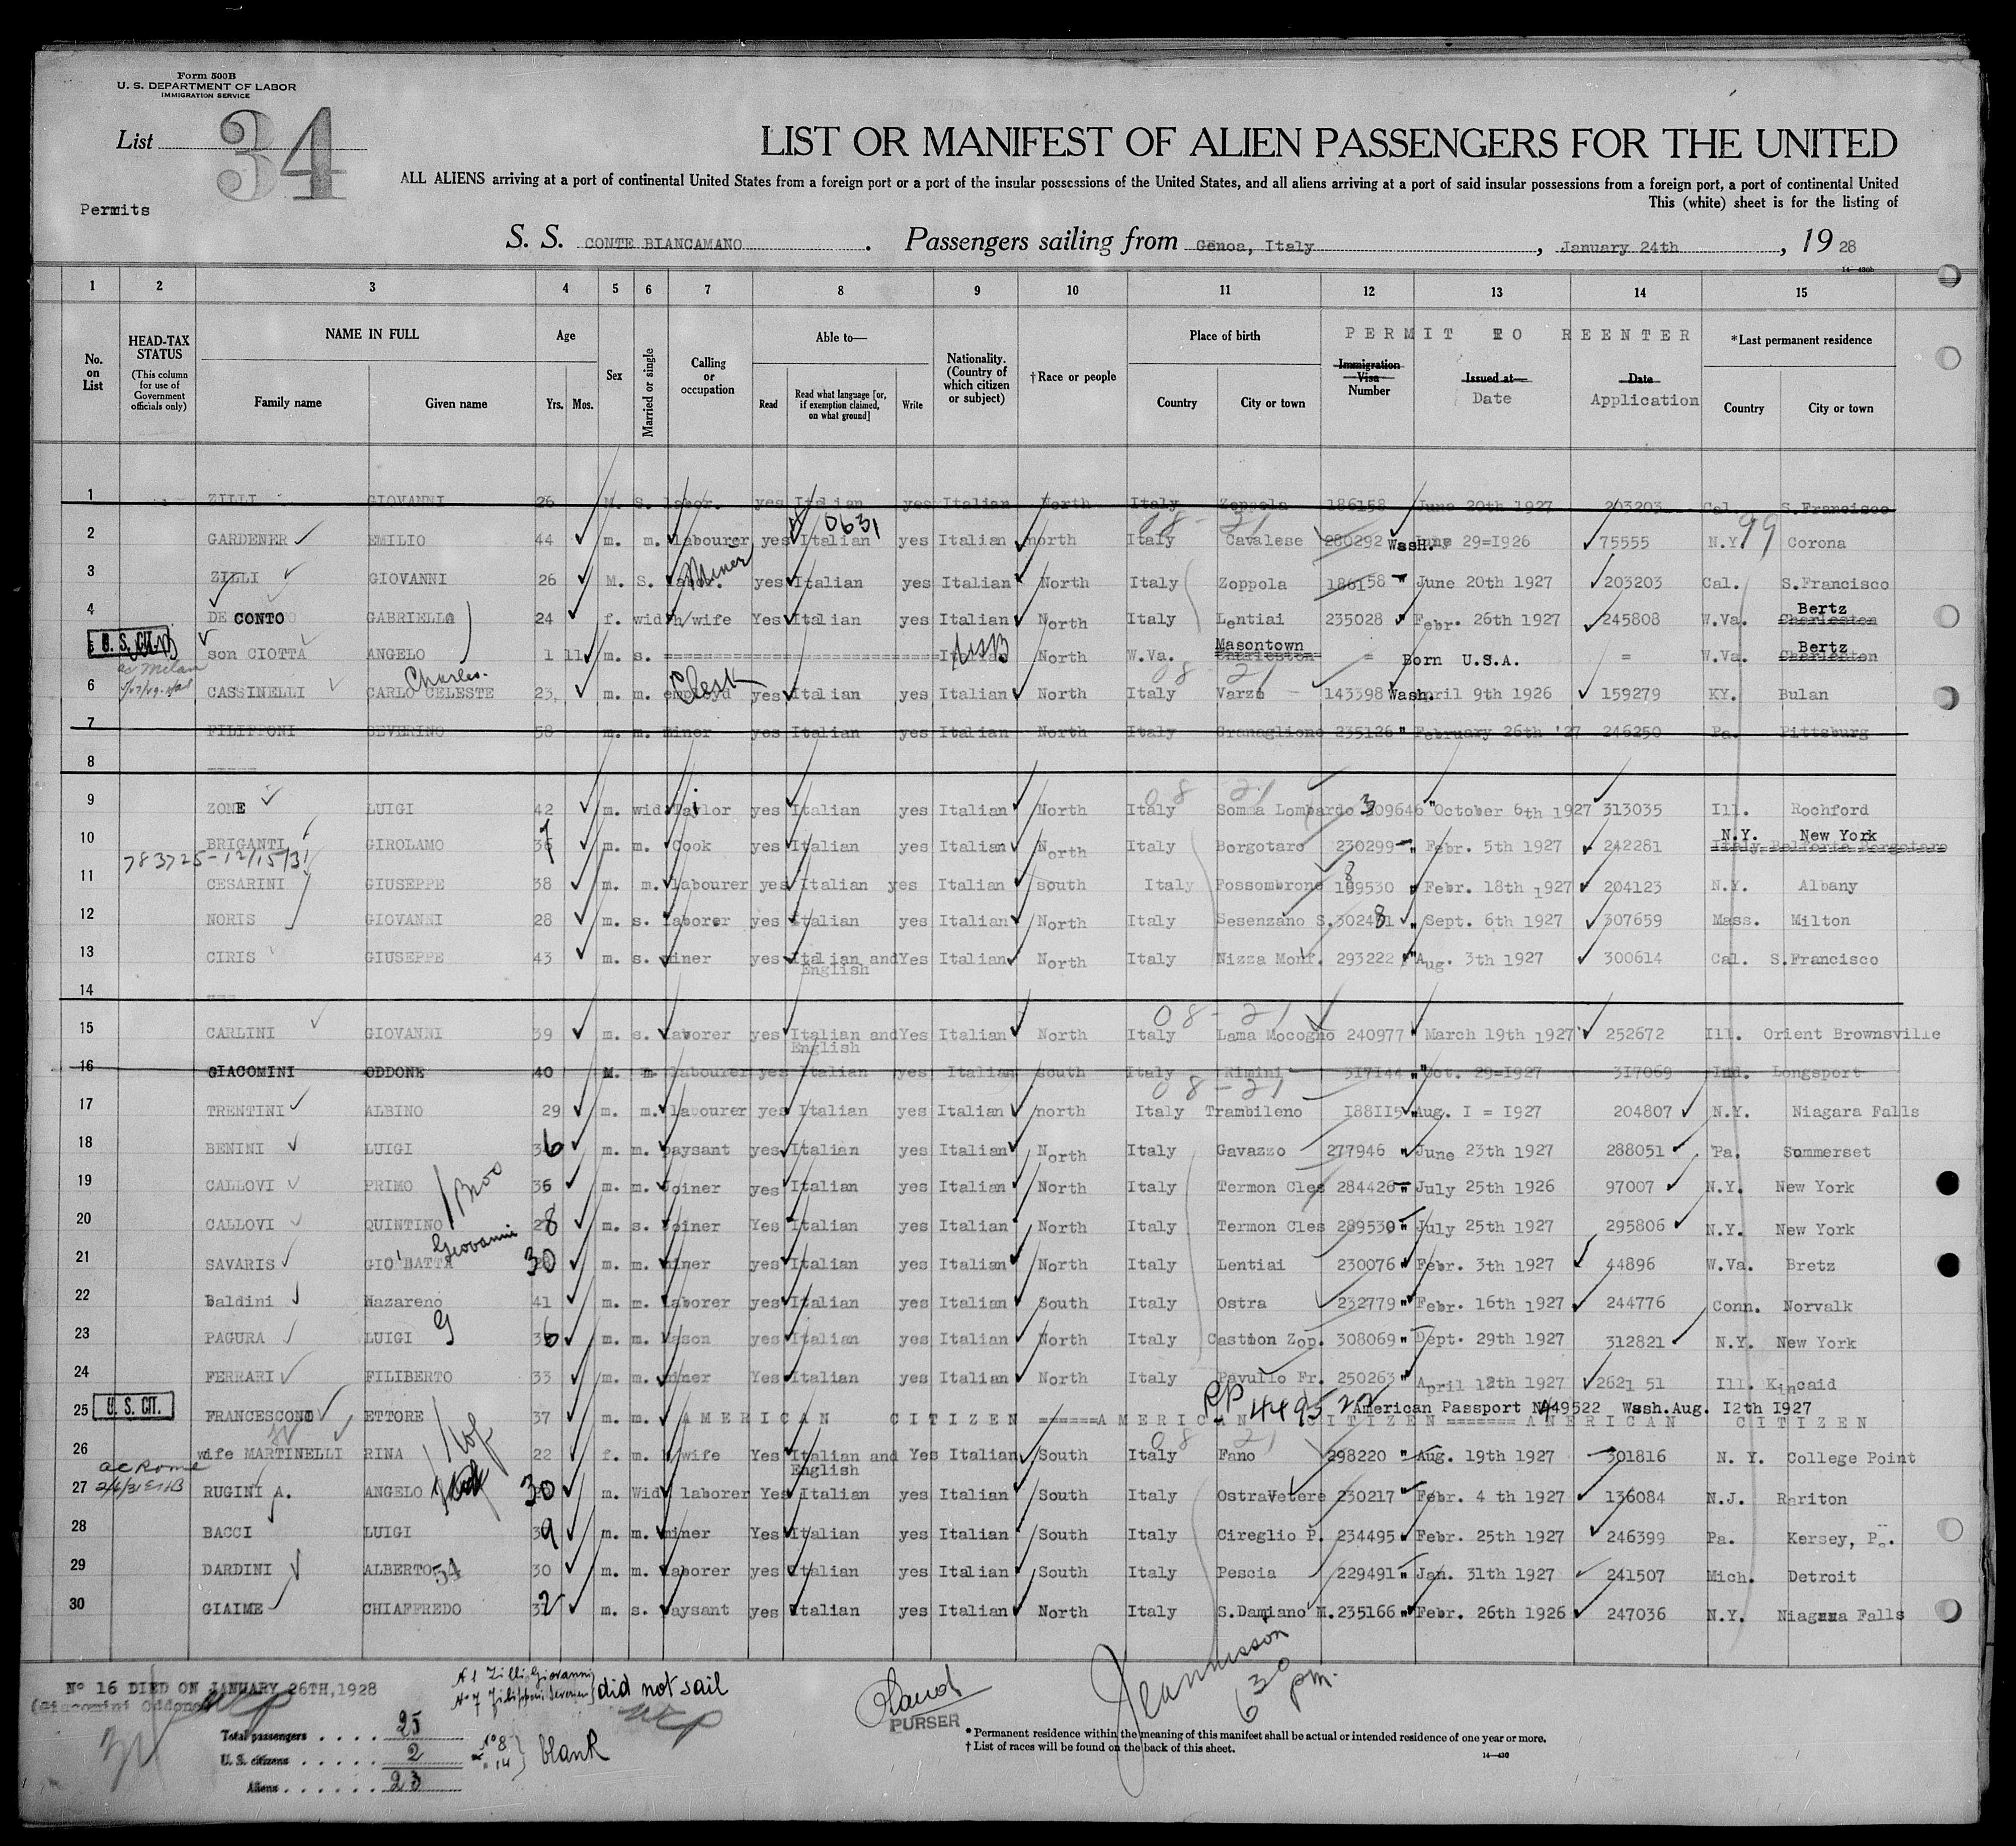 Form 500B
U. S. DEPARTMENT OF LABOR
IMMIGRATION SERVICE
List 34
LIST OR MANIFEST OF ALIEN PASSENGERS FOR THE UNITED
ALL ALIENS arriving at a port of continental United States from a foreign port or a port of the insular possessions of the United States, and all aliens arriving at a port of said insular possessions from a foreign port, a port of continental United
This (white) sheet is for the listing of
Permits
S. S. CONTE BIANCAMANO. Passengers sailing from Genoa, Italy, January 24th, 1928
14—430b
1 2 3 4 5 6 7 8 9 10 11 12 13 14 15
No. on List
HEAD-TAX STATUS (This column for use of Government officials only)
NAME IN FULL
Family name Given name
Age
Yrs. Mos.
Sex
Married or single
Calling or occupation
Able to—
Read Read what language [or, if exemption claimed, on what ground] Write
Nationality. (Country of which citizen or subject)
† Race or people
Place of birth
Country City or town
PERMIT TO REENTER
Immigration Visa Number
Issued at— Date
Date Application
*Last permanent residence
Country City or town
1 ZILLI GIOVANNI 26 M. S. labor. yes Italian yes Italian North Italy Zoppola 186158 June 20th 1927 203203 Cal. S.Francisco
0631 08 - 21 99
2 GARDENER EMILIO 44 m. m. labourer yes Italian yes Italian north Italy Cavalese 280292 Wash. June 29=1926 75555 N.Y. Corona
Miner
3 ZILLI GIOVANNI 26 M. S. labor. yes Italian yes Italian North Italy Zoppola 186158 " June 20th 1927 203203 Cal. S.Francisco
4 DE CONTO GABRIELLA 24 f. wid h/wife Yes Italian yes Italian North Italy Lentiai 235028 Febr. 26th 1927 245808 W.Va. Bertz Charleston
U. S. CIT. son CIOTTA ANGELO 1 11 m. s. ===== Italian USB North W.Va. Masontown Charleston = Born U.S.A. = W.Va. Bertz Charleston
ac Milan
Charles. Clerk 08 - 21
6 CASSINELLI CARLO CELESTE 23 m. m. employd yes Italian yes Italian North Italy Varzo 143398 Wash. April 9th 1926 159279 KY. Bulan
7 FILIPPONI SEVERINO 58 m. m. miner yes Italian yes Italian North Italy Granaglione 235126 " February 26th '27 246250 Pa. Pittsburg
8 -----
08 - 21
9 ZONE LUIGI 42 m. wid Tailor yes Italian yes Italian North Italy Somma Lombardo 309646 " October 6th 1927 313035 Ill. Rochford
10 BRIGANTI GIROLAMO 37 m. m. Cook yes Italian yes Italian North Italy Borgotaro 230299 " Febr. 5th 1927 242281 N.Y. New York
783725-12/15/31
11 CESARINI GIUSEPPE 38 m. m. labourer yes Italian yes Italian south Italy Fossombrone 189530 " Febr. 18th 1927 204123 N.Y. Albany
12 NORIS GIOVANNI 28 m. s. laborer yes Italian yes Italian North Italy Sesenzano S. 302481 " Sept. 6th 1927 307659 Mass. Milton
13 CIRIS GIUSEPPE 43 m. s. miner yes Italian and English Yes Italian North Italy Nizza Monf. 293222 " Aug. 3th 1927 300614 Cal. S.Francisco
14 ---
08 - 21
15 CARLINI GIOVANNI 39 m. s. laborer yes Italian and English Yes Italian North Italy Lama Mocogno 240977 March 19th 1927 252672 Ill. Orient Brownsville
16 GIACOMINI ODDONE 40 M. m labourer yes Italian yes Italian south Italy Rimini 317144 " Oct. 29=1927 317069 Ind. Longsport
08 - 21
17 TRENTINI ALBINO 29 m. m. labourer yes Italian yes Italian north Italy Trambileno 188115 " Aug. I = I927 204807 N.Y. Niagara Falls
18 BENINI LUIGI 36 m. m. paysant yes Italian yes Italian North Italy Gavazzo 277946 " June 23th 1927 288051 Pa. Sommerset
19 CALLOVI PRIMO 36 m. m. Joiner yes Italian yes Italian North Italy Termon Cles 284426 " July 25th 1926 97007 N.Y. New York
Bros
20 CALLOVI QUINTINO 28 m. s. joiner Yes Italian yes Italian North Italy Termon Cles 289530 " July 25th 1927 295806 N.Y. New York
Giovanni
21 SAVARIS GIO'BATTA 30 m. m. miner yes Italian yes Italian North Italy Lentiai 230076 " Febr. 3th 1927 44896 W.Va. Bretz
22 Baldini Nazareno 41 m. m. laborer yes Italian yes Italian South Italy Ostra 232779 " Febr. 16th 1927 244776 Conn. Norvalk
23 PAGURA LUIGI G 36 m. m. mason yes Italian yes Italian North Italy Castion Zop. 308069 " Sept. 29th 1927 312821 N.Y. New York
24 FERRARI FILIBERTO 33 m. m. miner Yes Italian yes Italian North Italy Pavullo Fr. 250263 " April 12th 1927 2621 51 Ill. Kincaid
PP 449522 American Passport N449522 Wash.Aug. I2th I927
25 U. S. CIT. FRANCESCONI ETTORE 37 m. m. AMERICAN CITIZEN ======AMERICAN CITIZEN ======= AMERICAN CITIZEN
08 21
26 wife MARTINELLI RINA 22 f. m. h/wife Yes Italian and English Yes Italian South Italy Fano 298220 " Aug. 19th 1927 301816 N. Y. College Point
ac Rome
27 RUGINI A. ANGELO 30 m. Wid laborer Yes Italian yes Italian South Italy OstraVetere 230217 Febr. 4 th 1927 136084 N.J. Rariton
28 BACCI LUIGI 39 m. m. miner Yes Italian yes Italian South Italy Cireglio P. 234495 Febr. 25th 1927 246399 Pa. Kersey, Pa.
29 DARDINI ALBERTO 54 30 m. m. laborer yes Italian yes Italian South Italy Pescia 229491 " Jan. 31th 1927 241507 Mich. Detroit
30 GIAIME CHIAFFREDO 32 m. s. paysant yes Italian yes Italian North Italy S.Damiano M. 235166 " Febr. 26th 1926 247036 N.Y. Niagara Falls
Nº 16 DIED ON JANUARY 26TH, 1928
(Giacomini Oddone)
Nº 1 Zilli Giovanni
Nº 7 Filipponi Severino } did not sail
Total passengers .... 25
U. S. citizens .... 2
Aliens .... 23
Nº 8
" 14 } blank
PURSER
6 30 pm.
* Permanent residence within the meaning of this manifest shall be actual or intended residence of one year or more.
† List of races will be found on the back of this sheet.
14—430